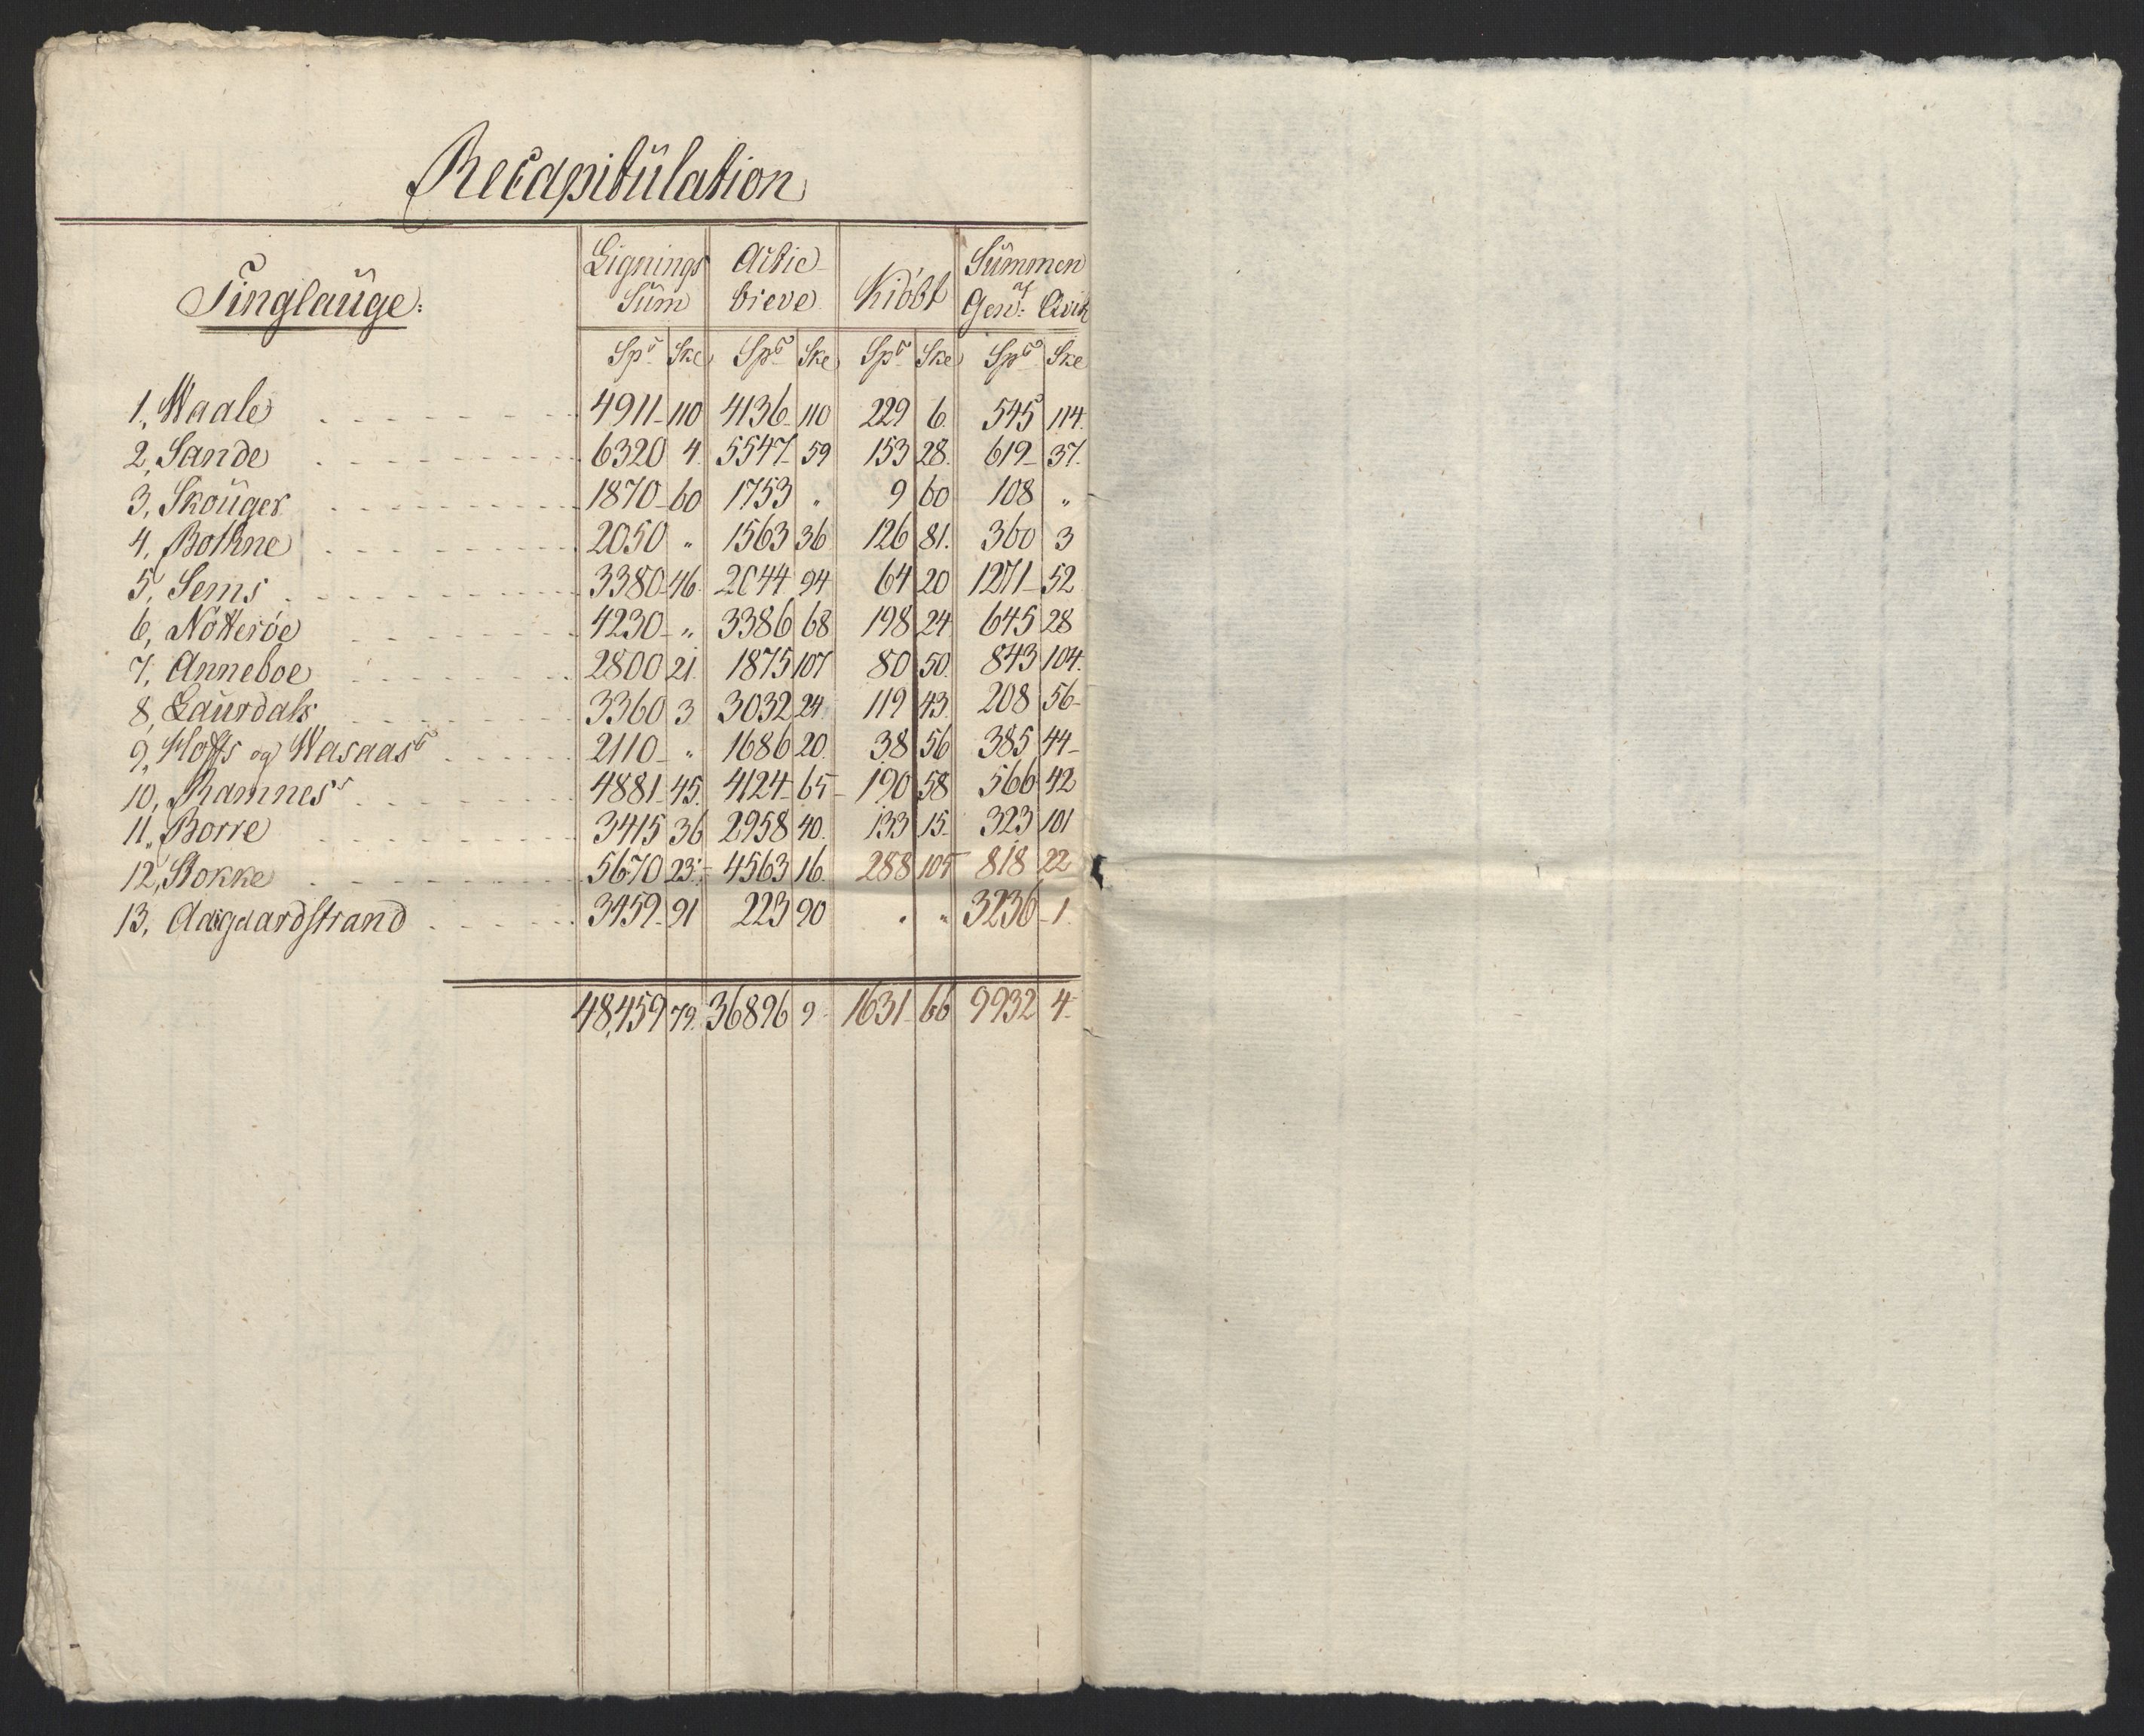 Recapitülation
Tinglaüge: Lignings Süm Actie breve Kiöbt Sümmen af Gen: Qvit
Spr Ske Spr Ske Spr Ske Spr Ske
1, Waale 4911 110 4136 110 229 6. 545 114.
2, Sande 6320 4. 5547 59 153 28. 619 37.
3, Skoüger 1870 60 1753 " 9 60 108 "
4, Bothne 2050 " 1563 36 126 81. 360 3
5, Sems 3380 46. 2044 94 64 20 1271 52
6, Nötteröe 4230 " 3386 68 198 24 645 28
7, Anneboe 2800 21. 1875 107 80 50. 843 104.
8, Laürdals 3360 3 3032 24. 119 43. 208 56
9, Hoffs og Wasaass 2110 " 1686 20. 38 56 385 44
10, Ramness 4881 45. 4124 65 190 58 566 42
11, Borre 3415 36 2958 40. 133 15. 323 101
12, Stokke 5670 23. 4563 16. 288 105 818 22
13, Aasgaardstrand 3459 91 223 90 . " 3236 1.
48,459 79. 36896 9 1631 66 9932 4